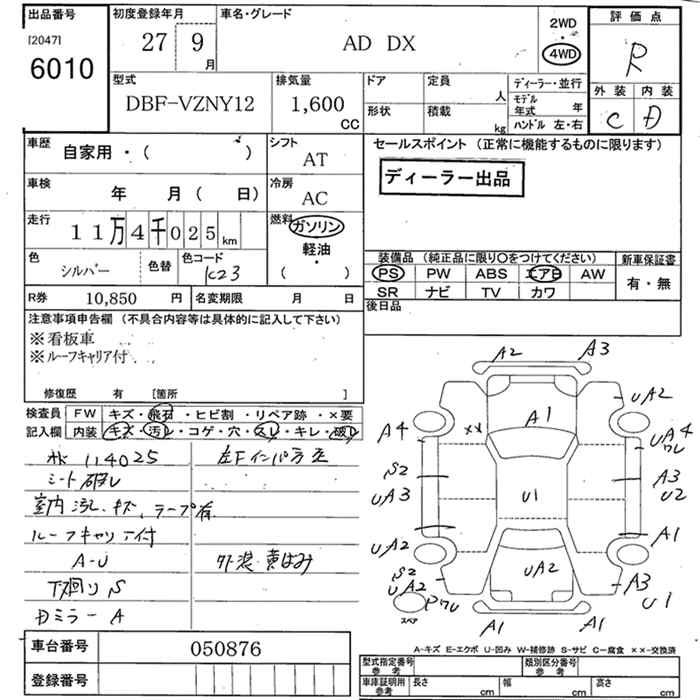 出品番号
[2047]
6010
初度登録年月
27 9
月
車名・グレード
AD DX
2WD
4WD
評価点
R
外装 内装
C D
型式
DBF-VZNY12
排気量
1,600
CC
ドア
形状
定員
人
積載
kg
ディーラー・並行
モデル年式 年
ハンドル 左・右
車歴
自家用・( )
シフト
AT
車検
年 月( 日)
冷房
AC
走行
11万4千025km
燃料
ガソリン
軽油
( )
色
シルバー
色替
色コード
K23
R券 10,850 円
名変期限 月 日
セールスポイント (正常に機能するものに限ります)
ディーラー出品
装備品 (純正品に限り〇をつけてください)
新車保証書
PS PW ABS エアB AW
SR ナビ TV カワ
有・無
後日品
注意事項申告欄 (不具合内容等は具体的に記入して下さい)
※看板車
※ルーフキャリア付
修復歴 有 [箇所 ]
検査員
記入欄
FW キズ・飛石・ヒビ割・リペア跡・×要
内装 キズ・汚れ・コゲ・穴・スレ・キレ・破れ
114025
シート破れ
室内汚れ、キズ、テープ有
ルーフキャリア付
A-U
下廻りS
Dミラー A
左Fインパ歪
外装 黄ばみ
A2 A3
UA2
A1
A4
××
UA4
ワレ
S2
UA3
U1
A3
U2
A1
UA2
UA2
S2
UA2
ワレ
A3
U1
スペア
A1 A1
A-キズ E-エクボ U-凹み W-補修跡 S-サビ C-腐食 ××-交換済
車台番号 050876
登録番号
型式指定番号
参考
類別区分番号
参考
車庫証明用
参考
長さ cm
幅 cm
高さ cm